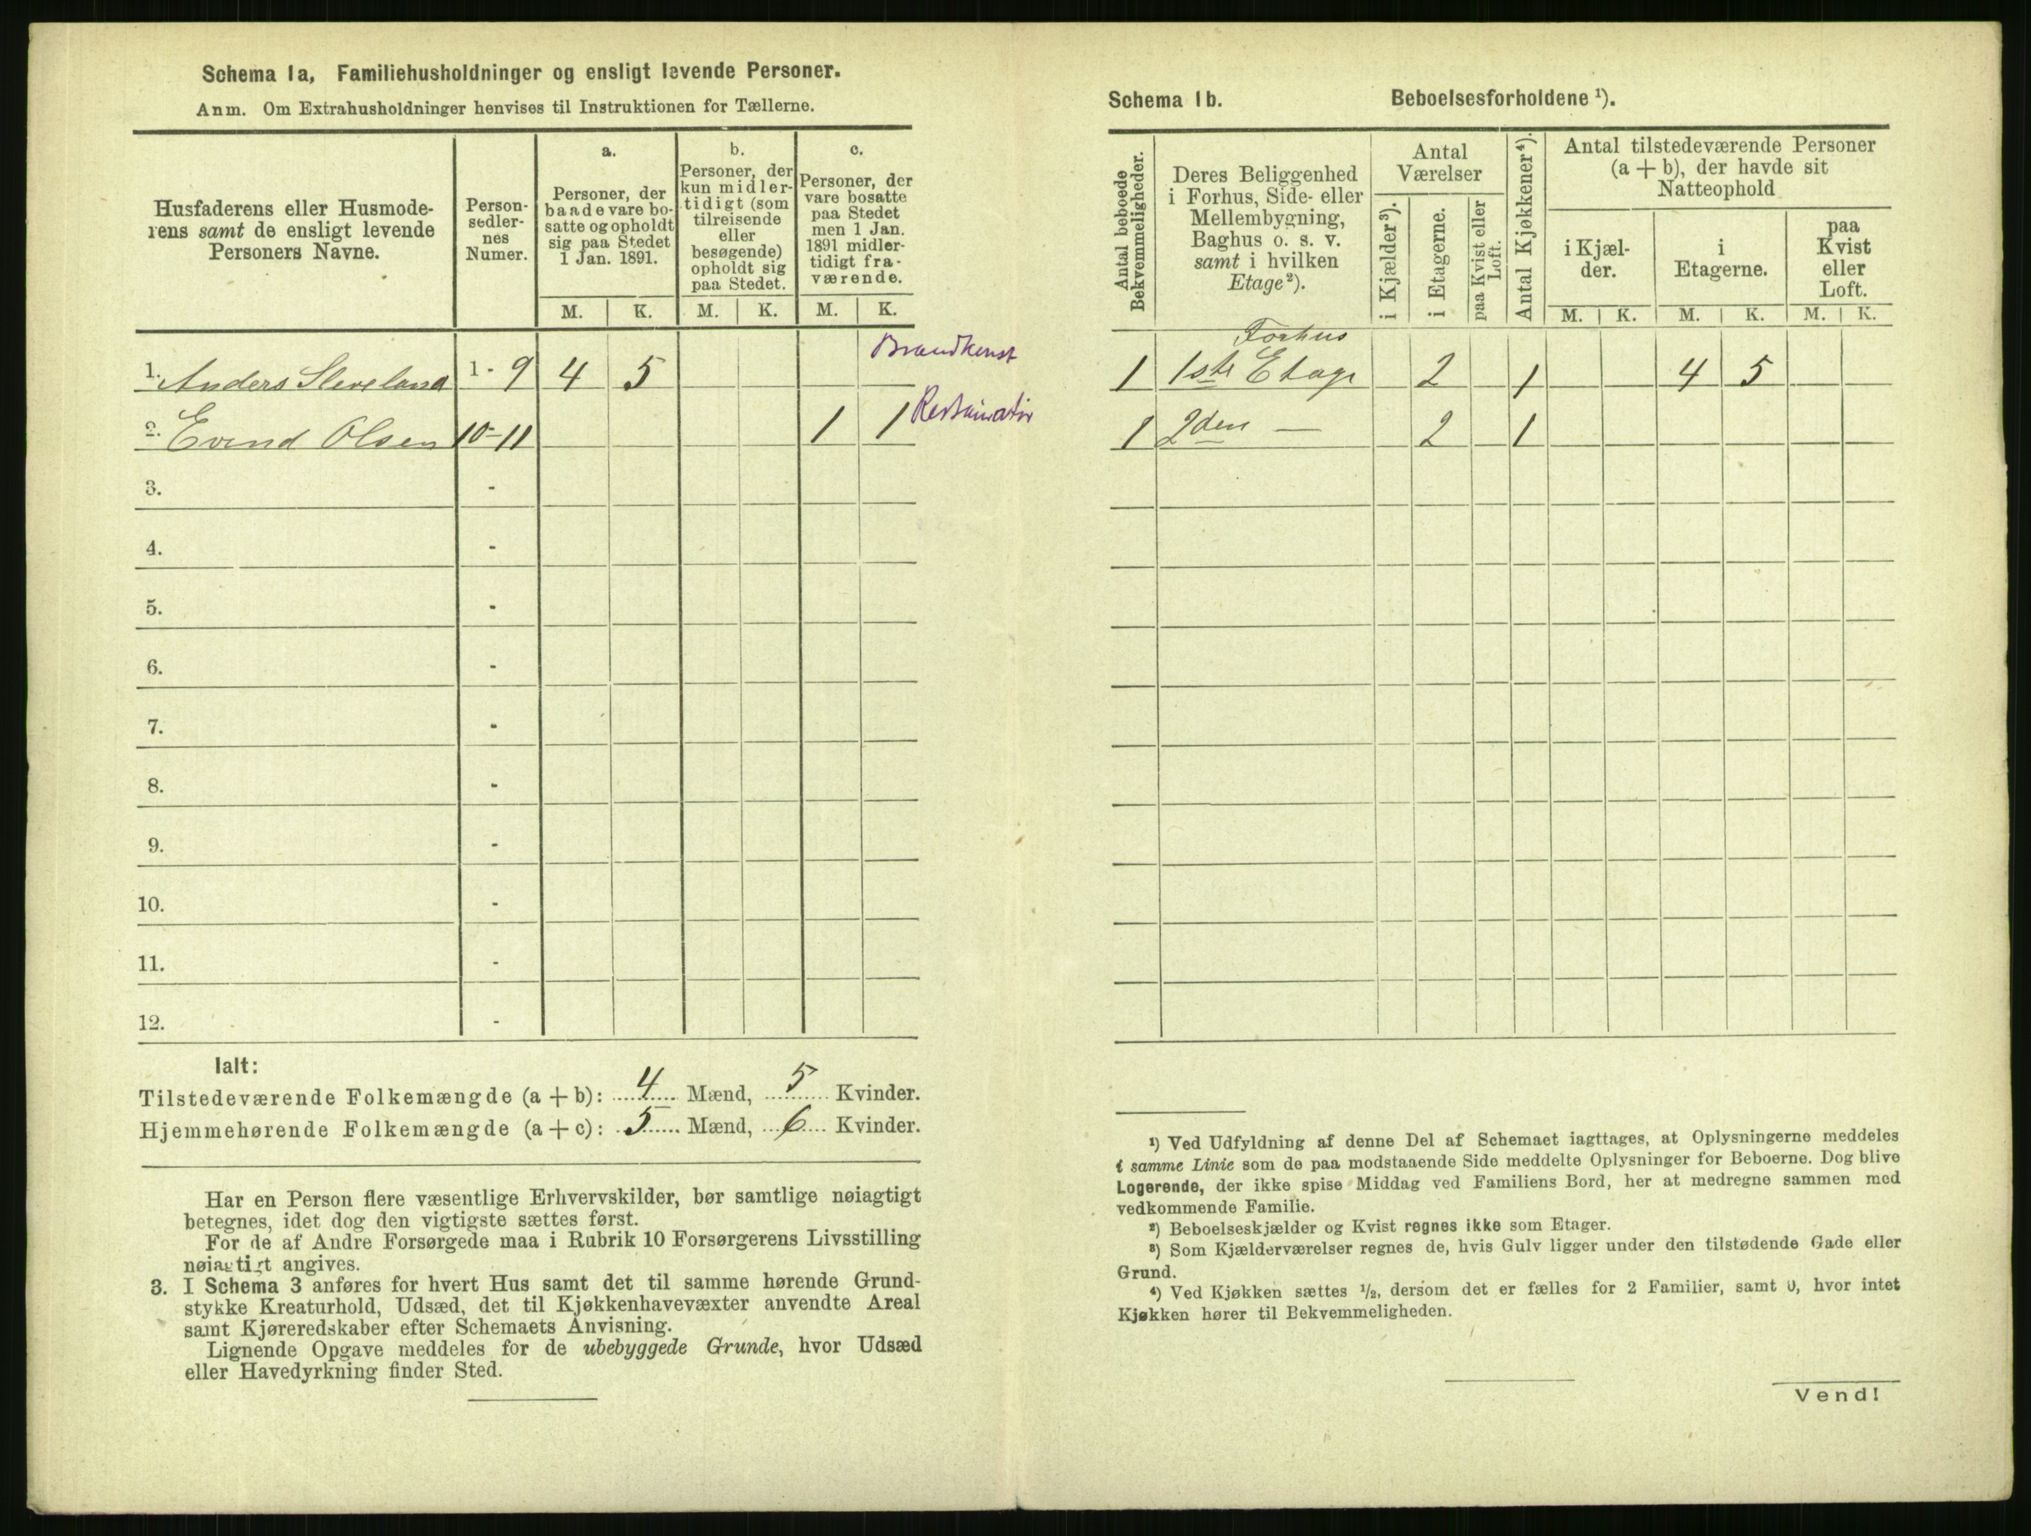 Schema 1a, Familiehusholdninger og ensligt levende Personer.
Anm. Om Extrahusholdninger henvises til Instruktionen for Tællerne.
Husfaderens eller Husmode-
rens samt de ensligt levende
Personers Navne.
Person-
sedler-
nes
Numer.
a.
Personer, der
baade vare bo-
satte og opholdt
sig paa Stedet
1 Jan. 1891.
b.
Personer, der
kun midler-
tidigt (som
tilreisende
eller
besøgende)
opholdt sig
paa Stedet.
c.
Personer, der
vare bosatte
paa Stedet
men 1 Jan.
1891 midler-
tidigt fra-
værende.
M. K. M. K. M. K.
1. Anders Sleveland 1 - 9 4 5
2. Evend Olsen 10-11 1 1
3. -
4. -
5. -
6. -
7. -
8. -
9. -
10. -
11. -
12. -
Ialt:
Tilstedeværende Folkemængde (a + b): 4 Mænd, 5 Kvinder.
Hjemmehørende Folkemængde (a + c): 5 Mænd, 6 Kvinder.
Har en Person flere væsentlige Erhvervskilder, bør samtlige nøiagtigt
betegnes, idet dog den vigtigste sættes først.
For de af Andre Forsørgede maa i Rubrik 10 Forsørgerens Livsstilling
nøiagtigt angives.
3. I Schema 3 anføres for hvert Hus samt det til samme hørende Grund-
stykke Kreaturhold, Udsæd, det til Kjøkkenhavevæxter anvendte Areal
samt Kjøreredskaber efter Schemaets Anvisning.
Lignende Opgave meddeles for de ubebyggede Grunde, hvor Udsæd
eller Havedyrkning finder Sted.
Schema 1b. Beboelsesforholdene ¹).
Antal beboede
Bekvemmeligheder.
Deres Beliggenhed
i Forhus, Side- eller
Mellembygning,
Baghus o. s. v.
samt i hvilken
Etage²).
Antal
Værelser
i Kjælder³).
i Etagerne.
paa Kvist eller
Loft.
Antal Kjøkkener⁴).
Antal tilstedeværende Personer
(a + b), der havde sit
Natteophold
i Kjæl-
der.
i
Etagerne.
paa
Kvist
eller
Loft.
M. K. M. K. M. K.
Forhus
1 1ste Etage 2 1 4 5
1 2den — 2 1
¹) Ved Udfyldning af denne Del af Schemaet iagttages, at Oplysningerne meddeles
i samme Linie som de paa modstaaende Side meddelte Oplysninger for Beboerne. Dog blive
Logerende, der ikke spise Middag ved Familiens Bord, her at medregne sammen med
vedkommende Familie.
²) Beboelseskjælder og Kvist regnes ikke som Etager.
³) Som Kjælderværelser regnes de, hvis Gulv ligger under den tilstødende Gade eller
Grund.
⁴) Ved Kjøkken sættes ½, dersom det er fælles for 2 Familier, samt 0, hvor intet
Kjøkken hører til Bekvemmeligheden.
Vend!